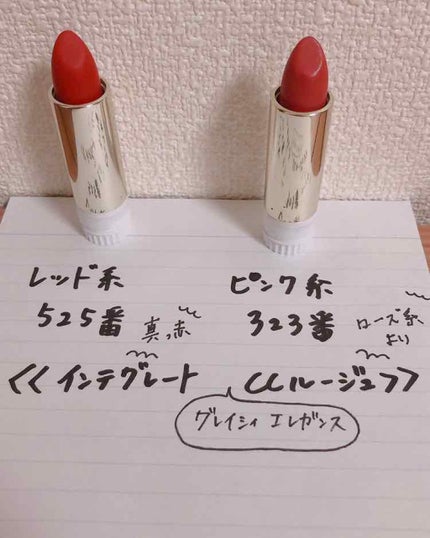 レッド系
525番 真っ赤
ピンク系
323番 ローズ系
より
<<インテグレート <<ルージュ>>
グレイシィ エレガンス